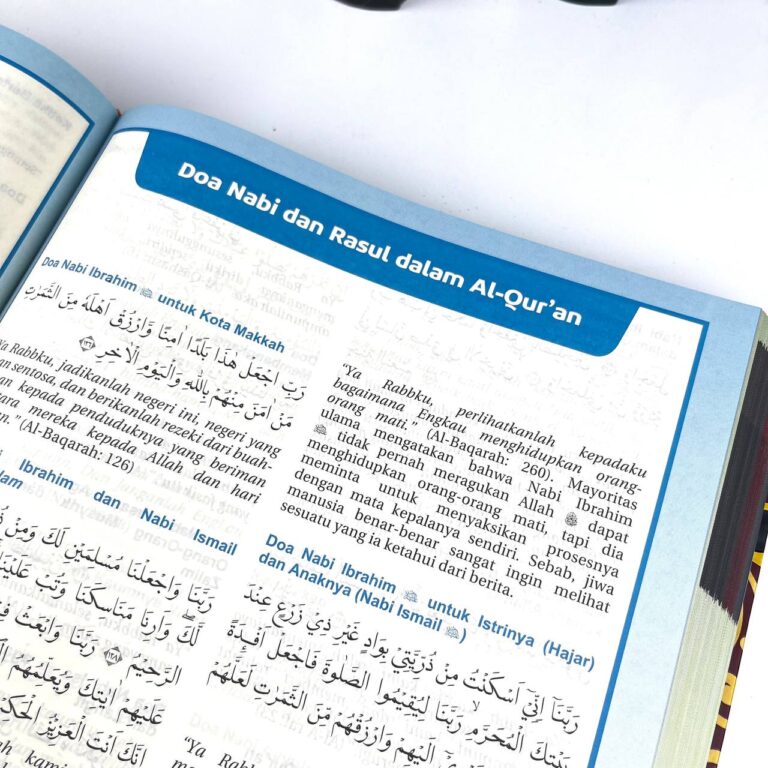 Doa Nabi dan Rasul dalam Al-Qur'an
Doa Nabi Ibrahim untuk Kota Makkah
رَبِّ اجْعَلْ هٰذَا بَلَدًا اٰمِنًا وَّارْزُقْ اَهْلَهٗ مِنَ الثَّمَرٰتِ
مَنْ اٰمَنَ مِنْهُمْ بِاللّٰهِ وَالْيَوْمِ الْاٰخِرِ ١٢٦
"Ya Rabbku, jadikanlah negeri ini, negeri yang
sentosa, dan berikanlah rezeki dari buah-
kepada penduduknya yang beriman
mereka kepada Allah dan hari
(Al-Baqarah: 126)
Ibrahim dan Nabi Ismail
رَبَّنَا وَاجْعَلْنَا مُسْلِمَيْنِ لَكَ وَمِنْ
لَّكَ وَاَرِنَا مَنَاسِكَنَا وَتُبْ عَلَيْنَا
الرَّحِيْمُ ١٢٨ رَبَّنَا وَابْعَثْ
عَلَيْهِمْ اٰيٰتِكَ وَيُعَلِّمُهُمُ
اِنَّكَ اَنْتَ الْعَزِيْزُ الْحَكِيْمُ
kami
"Ya Rabbku, perlihatkanlah kepadaku
bagaimana Engkau menghidupkan orang-
orang mati." (Al-Baqarah: 260). Mayoritas
ulama mengatakan bahwa Nabi Ibrahim
tidak pernah meragukan Allah dapat
menghidupkan orang-orang mati, tapi dia
meminta untuk menyaksikan prosesnya
dengan mata kepalanya sendiri. Sebab, jiwa
manusia benar-benar sangat ingin melihat
sesuatu yang ia ketahui dari berita.
Doa Nabi Ibrahim untuk Istrinya (Hajar)
dan Anaknya (Nabi Ismail )
رَبَّنَآ اِنِّيْٓ اَسْكَنْتُ مِنْ ذُرِّيَّتِيْ بِوَادٍ غَيْرِ ذِيْ زَرْعٍ عِنْدَ
بَيْتِكَ الْمُحَرَّمِ رَبَّنَا لِيُقِيْمُوا الصَّلٰوةَ فَاجْعَلْ اَفْـِٕدَةً
اِلَيْهِمْ وَارْزُقْهُمْ مِّنَ الثَّمَرٰتِ لَعَلَّهُمْ
"Ya Rabb